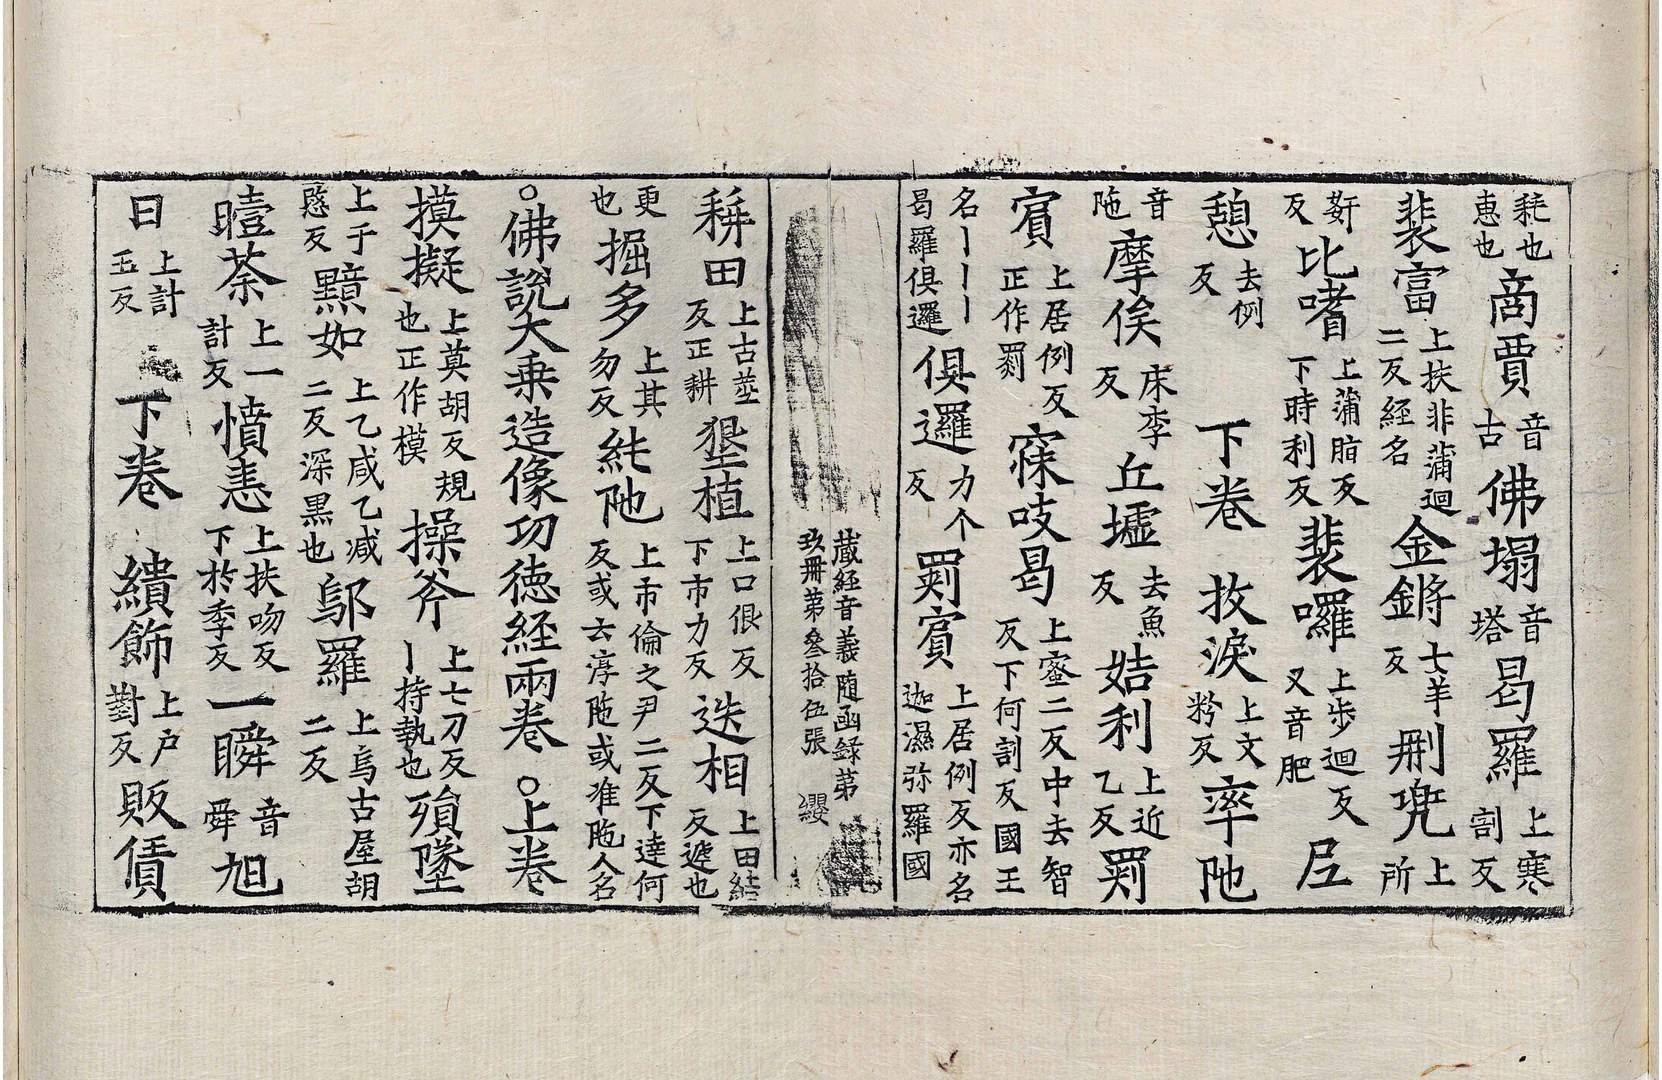 耗也惠也商賈音古佛塌音塔曷羅上寒割反
裴富上扶非蒲迴二反經名金鏘七羊反刪兜上所
姧反比嗜上蒲脂反下時利反裴囉上步迴反又音肥𡰱
憩去例反 下卷 抆淚上文粉反率陁
音陁摩俟床李反丘墟去魚反姞利上近乙反罽
賓上居例反正作罽寐吱曷上蜜二反中去智反下何割反國王
名丨丨丨曷羅俱邏俱邏力个反罽賓上居例反亦名迦濕弥羅國
藏經音義随函錄第玖冊第叄拾伍張 纓
耕田上古莖反正耕墾植上口佷反下市力反迭相上田結反遞也
更也掘多上其勿反純陁上市倫之尹二反下達何反或云淳陁或准陁人名
○佛說大乗造像功德經兩卷 ○上卷
摸擬上莫胡反規也正作模操斧上七刀反丨持執也殞墜
上于愍反黭如上乙咸乙减二反深黒也鄔羅上烏古屋胡二反
曀荼上一計反憤恚上扶吻反下於季反一瞬音舜旭
日上計玉反 下卷 繢飾上户對反販債